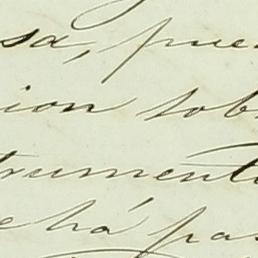 sa, pue
ion sob
trumento
e há pas